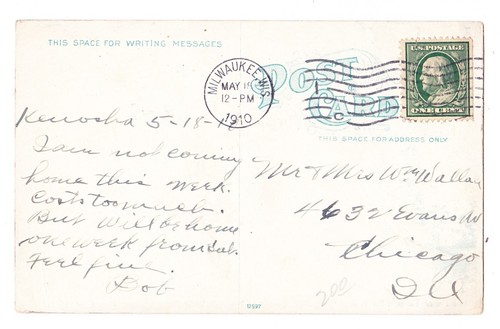 THIS SPACE FOR WRITING MESSAGES
POST
CARD
THIS SPACE FOR ADDRESS ONLY
MILWAUKEE, WIS.
MAY 18
12-PM
1910
U.S. POSTAGE
ONE CENT
Kenosha 5-18-10
I am not coming
home this week.
Costs too much.
But will be home
one week from Sat.
Feel fine.
Bob
Mr & Mrs Wm Wallan
4632 Evans Av
Chicago
Ill
200